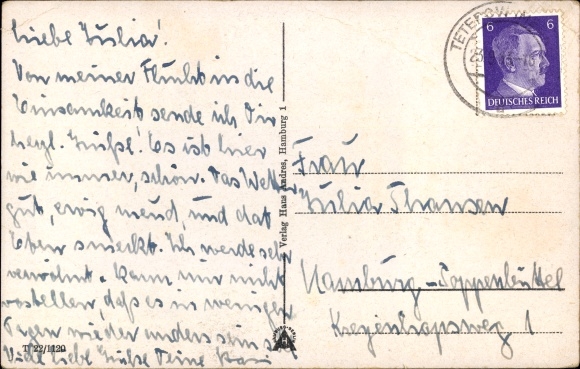 Liebe Julia!
Von meiner Flucht in die
Einsamkeit sende ich Dir
herzl. Grüße! Es ist hier
wie immer, schön. Das Wetter
gut, ewig und das
Leben Ich werde sehr
verwöhnt. Kann mir nicht
vorstellen, daß es in wenigen
Tagen wieder anders sein soll
Viele liebe Grüße Deine
T 22/1120
Verlag Hans Andres, Hamburg 1
TETEROW
6 6
DEUTSCHES REICH
Frau
Julia Thansen
Hamburg-Poppenbüttel
1